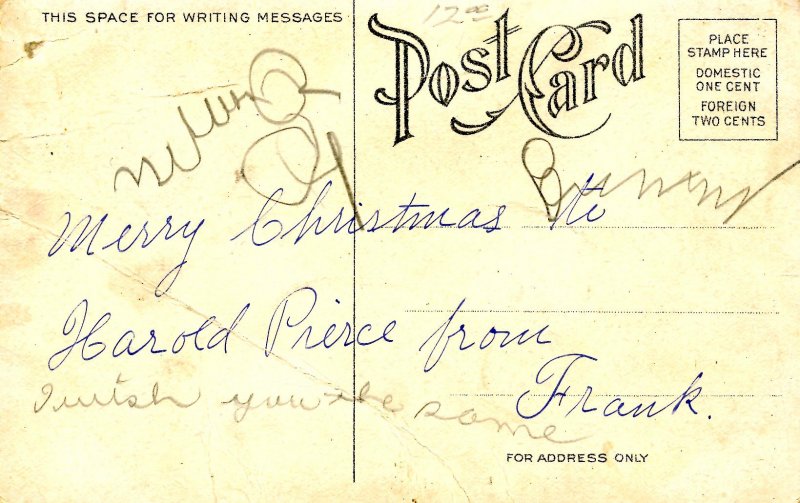 THIS SPACE FOR WRITING MESSAGES
12.00
Post Card
PLACE
STAMP HERE
DOMESTIC
ONE CENT
FOREIGN
TWO CENTS
Merry Christmas to
Harold Pierce from
Frank.
I wish you the same
FOR ADDRESS ONLY